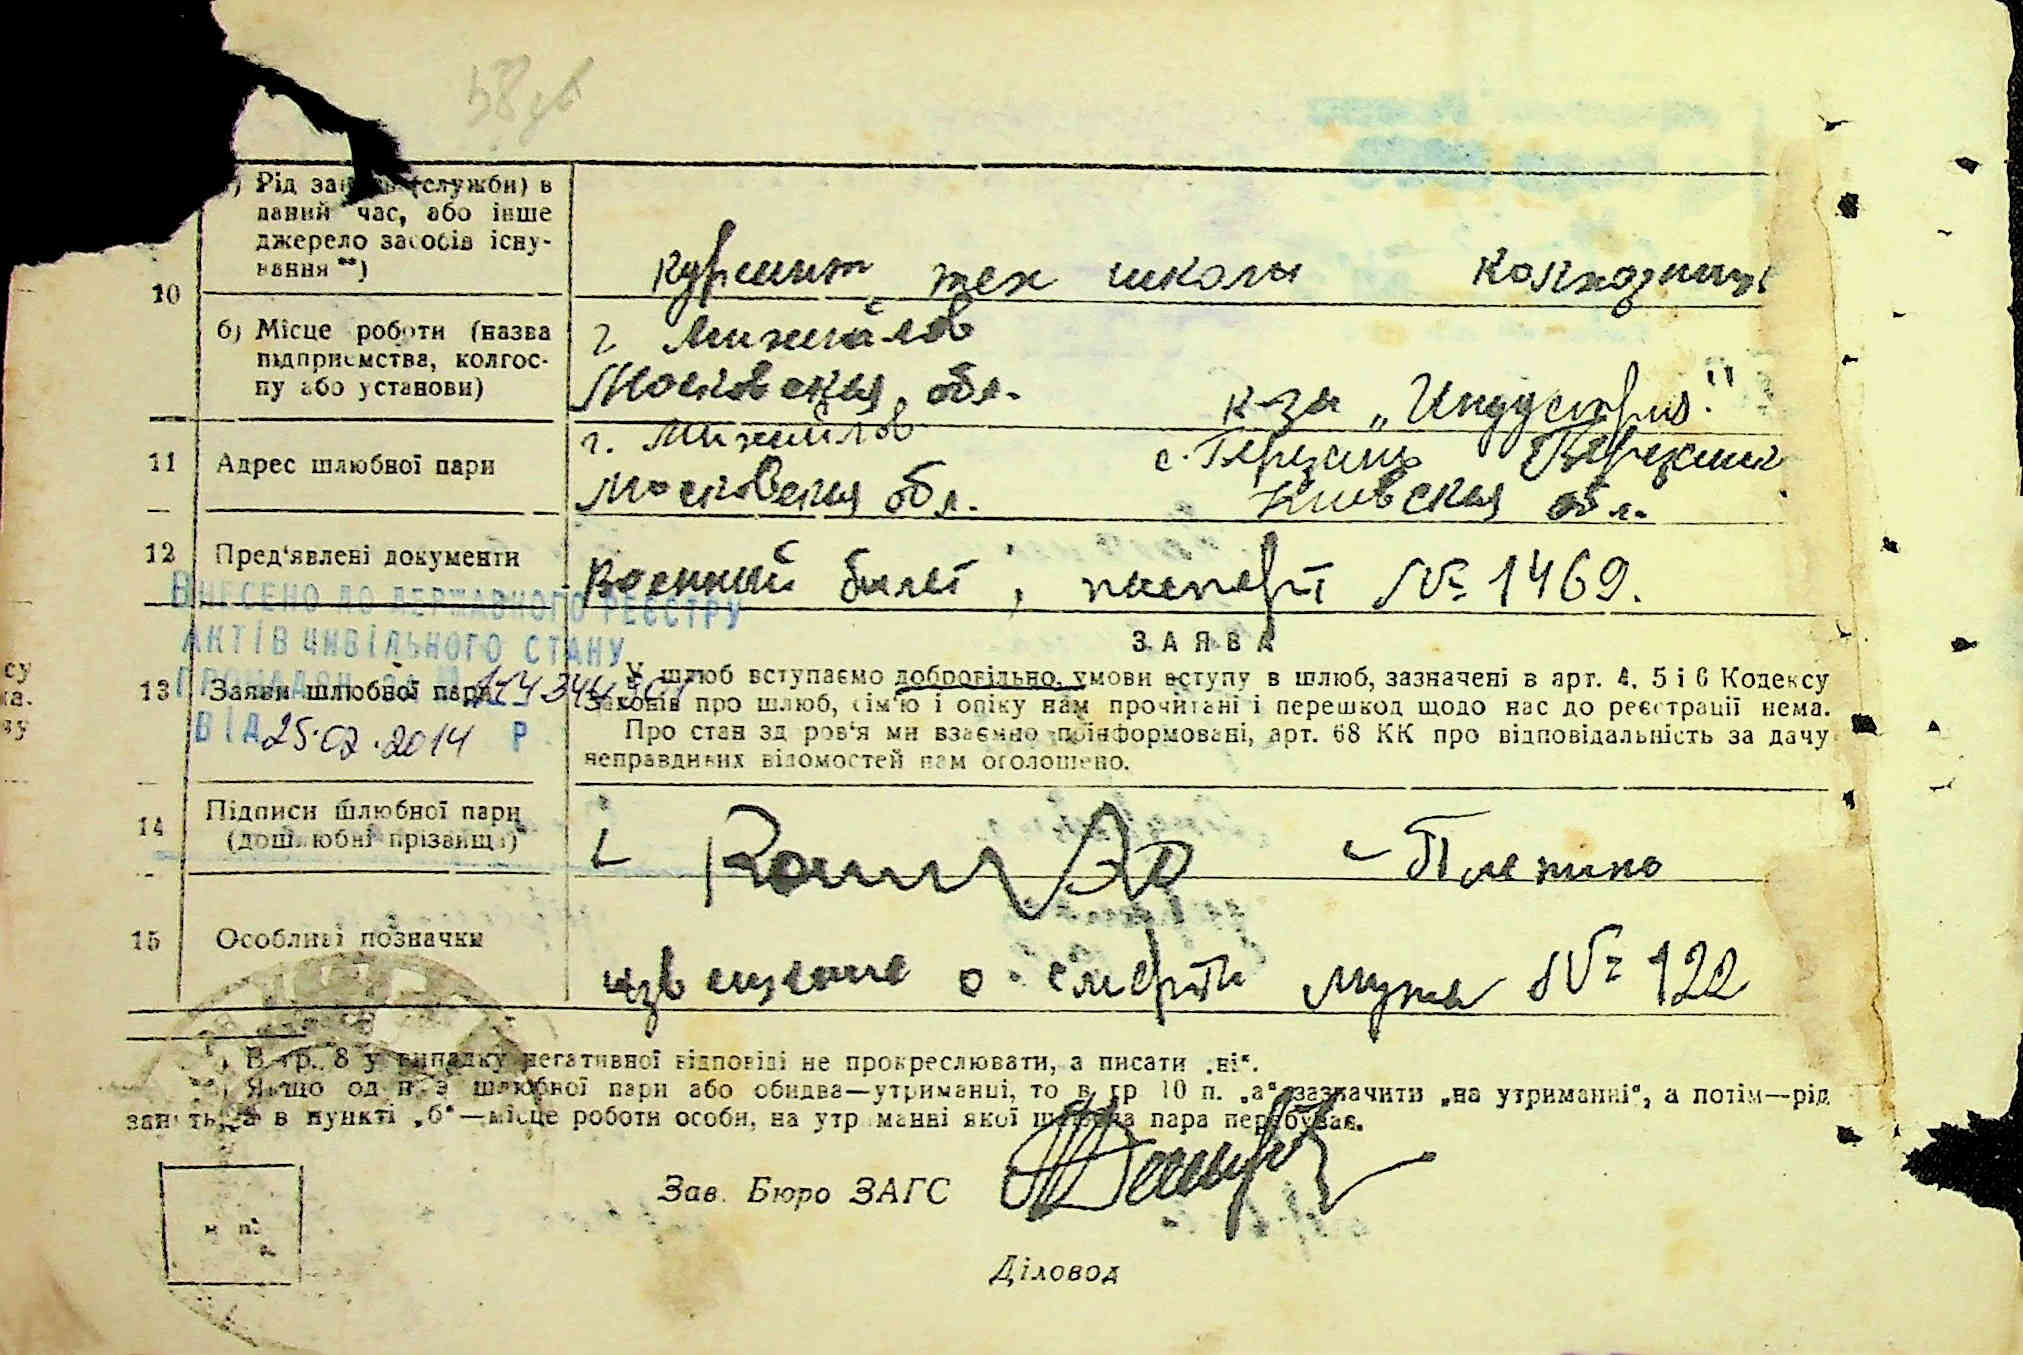 Рід занять (служби) в
даний час, або інше
джерело засобів існу-
вання **)
курсант тех школы
10
б) Місце роботи (назва
підприємства, колгос-
пу або установи)
г Михайлов
Московская обл.
к-за „Индустрия"
11 Адрес шлюбної пари
г. Михайлов
Московская обл.
Киевская обл.
12 Пред'явлені документи
Военный билет, паспорт № 1469.
ВНЕСЕНО ДО ДЕРЖАВНОГО РЕЄСТРУ
АКТІВ ЦИВІЛЬНОГО СТАНУ
ГРОМАДЯН ЗА №
ВІД 25.02.2014 Р
13 Заяви шлюбної пари
ЗАЯВА
У шлюб вступаємо добровільно, умови вступу в шлюб, зазначені в арт. 4, 5 і 6 Кодексу
Законів про шлюб, сім'ю і опіку нам прочитані і перешкод щодо нас до реєстрації нема.
Про стан здоров'я ми взаємно поінформовані, арт. 68 КК про відповідальність за дачу
неправдивих відомостей нам оголошено.
14 Підписи шлюбної пари
(дошлюбні прізвища)
15 Особливі позначки
извещение о смерти мужа № 122
В гр. 8 у випадку негативної відповіді не прокреслювати, а писати „ні".
Якщо один з шлюбної пари або обидва—утриманці, то в гр 10 п. „а" зазначити „на утриманні", а потім—рід
занять, а в пункті „б"—місце роботи особи, на утриманні якої шлюбна пара перебуває.
Зав. Бюро ЗАГС
м п.
Діловод